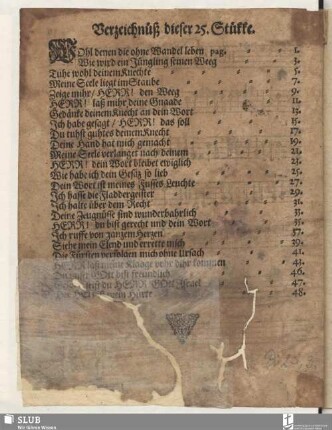 Verzeichnüß dieser 25. Stükke.
WOhl denen die ohne Wandel leben pag. 1.
Wie wird ein Jüngling seinen Weeg 3.
Tuhe wohl deinem Knechte 5.
Meine Seele liegt im Staube 7.
Zeige mihr / HERR! den Weeg 9.
HERR! laß mihr deine Gnaade 11.
Gedänke deinem Knecht an dein Wort 13.
Ich habe gesagt / HERR! das soll 15.
Du tuhst guhtes deinem Knecht 17.
Deine Hand hat mich gemacht 19.
Meine Seele verlanget nach deinem 21.
HERR! dein Wort bleibet ewiglich 23.
Wie habe ich dein Gesäz so lieb 25.
Dein Wort ist meines Fusses Leuchte 27.
Ich hasse die Fladdergeister 29.
Ich halte über dem Recht 31.
Deine Zeugnüsse sind wunderbahrlich 33.
HERR! du bist gerecht und dein Wort 35.
Ich ruffe von ganzem Herzen 37.
Siehe mein Elend und errette mich 39.
Die Fürsten verfolgen mich ohne Ursach 41.
HERR laß meine Klaage vohr dihr kommen 43.
GOtt bist freundlich 46.
HERR GOtt Israel 47.
Der HERR mein Hürte 48.
SLUB
Wir führen Wissen.